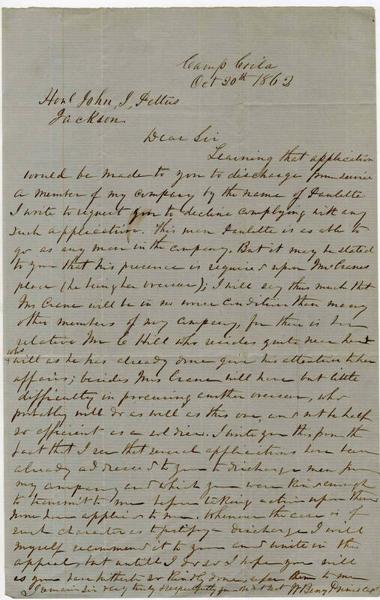 Camp Cecila
Oct 20th 1862
Honl John, J, Pettus
Jackson
Dear Sir
Learning that application
would be made to you to discharge from service
a member of my company by the name of Faulette
I write to request you to decline complying with any
such application. This man Faulette is as able to
go as any man in the company. But it may be stated
to you that his presence is required upon Mrs Cranes
place (he being her overseer); I will say this much that
Mrs Crane will be in no worse condition than many
other members of my company, for there is her
relative Mr C Hill who resides quite near her &
who will as he has already done give his attention to her
affairs; besides Mrs Crane will have but little
difficulty in procuring another overseer, who
probably will do as well as this one, and not be half
so efficient as a soldier. I write you this, from the
fact that I see that several applications have been
already adressed to you to discharge men from
my company, and which you were kind enough
to transmit to me before taking action upon them
None have applied to me. Whenever the case is of
such character as to justify a discharge I will
myself recommend it to you and unite in the
appeal, but untill I do so I hope you will
as you have hitherto so kindly done, refer them to me
I remain Sir very truly & respectfully your obt svt